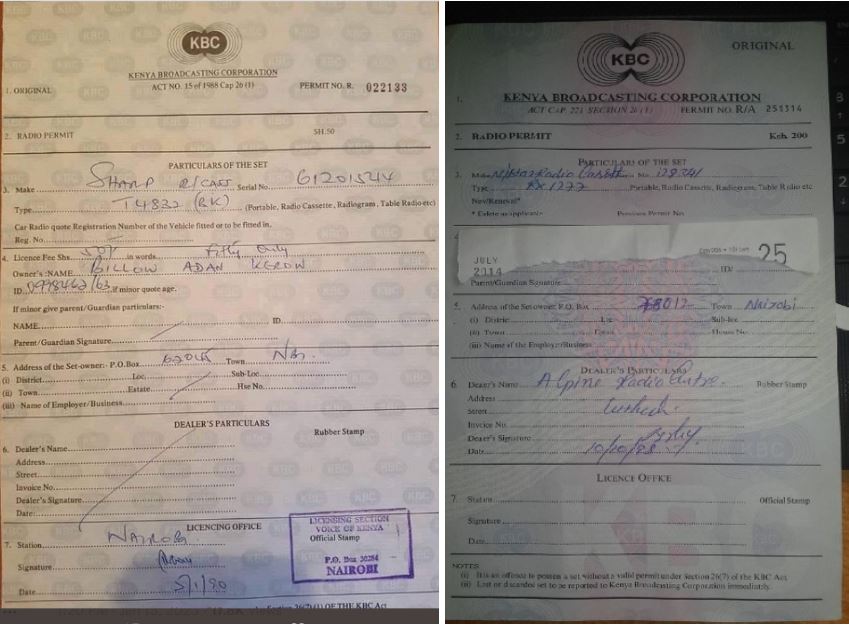 KBC
KENYA BROADCASTING CORPORATION
ACT NO. 15 of 1988 Cap 26 (1)
1. ORIGINAL PERMIT NO. R. 022133
2. RADIO PERMIT SH.50
PARTICULARS OF THE SET
3. Make SHARP R/CASS Serial No. 61201544
Type T4832 (BK) (Portable, Radio Cassette, Radiogram, Table Radio etc)
Car Radio quote Registration Number of the Vehicle fitted or to be fitted in.
Reg. No.
4. Licence Fee Shs. 50/- in words Fifty Only
Owner's :NAME BILLOW ADAN KEROW
ID. if minor quote age.
If minor give parent/Guardian particulars:-
NAME ID.
Parent/Guardian Signature
5. Address of the Set-owner:- P.O.Box 62045 Town Nbi.
(i) District Loc. Sub-Loc.
(ii) Town Estate Hse No.
(iii) Name of Employer/Business
DEALER'S PARTICULARS
Rubber Stamp
6. Dealer's Name
Address
Street
Invoice No.
Dealer's Signature
Date
LICENCING OFFICE
7. Station NAIROBI
Signature
Date 5/1/90
LICENSING SECTION
VOICE OF KENYA
Official Stamp
P.O. Box 30284
NAIROBI
OF THE KBC Act
ORIGINAL
KBC
1. KENYA BROADCASTING CORPORATION
ACT CAP. 221 SECTION 26 (1) PERMIT NO. R/A 251314
2. RADIO PERMIT Ksh. 200
PARTICULARS OF THE SET
3. Make Radio No. 128341
Type RX 1277 Portable, Radio Cassette, Radiogram, Table Radio etc
New/Renewal*
* Delete as applicable Previous Permit No.
4
JULY 2014 25
ID/
Parent/Guardian Signature
5. Address of the Set owner P.O. Box 78012 Town Nairobi
(i) District Loc Sub-loc
(ii) Town Estate House No.
(iii) Name of the Employer/Business
DEALER'S PARTICULARS
6. Dealer's Name Alpine Radio Centre. Rubber Stamp
Address
Street
Invoice No.
Dealer's Signature
Date 10/10/98
LICENCE OFFICE
7. Station Official Stamp
Signature
Date
NOTES
(i) It is an offence to possess a set without a valid permit under Section 26(7) of the KBC Act
(ii) Lost or discarded set to be reported to Kenya Broadcasting Corporation immediately.